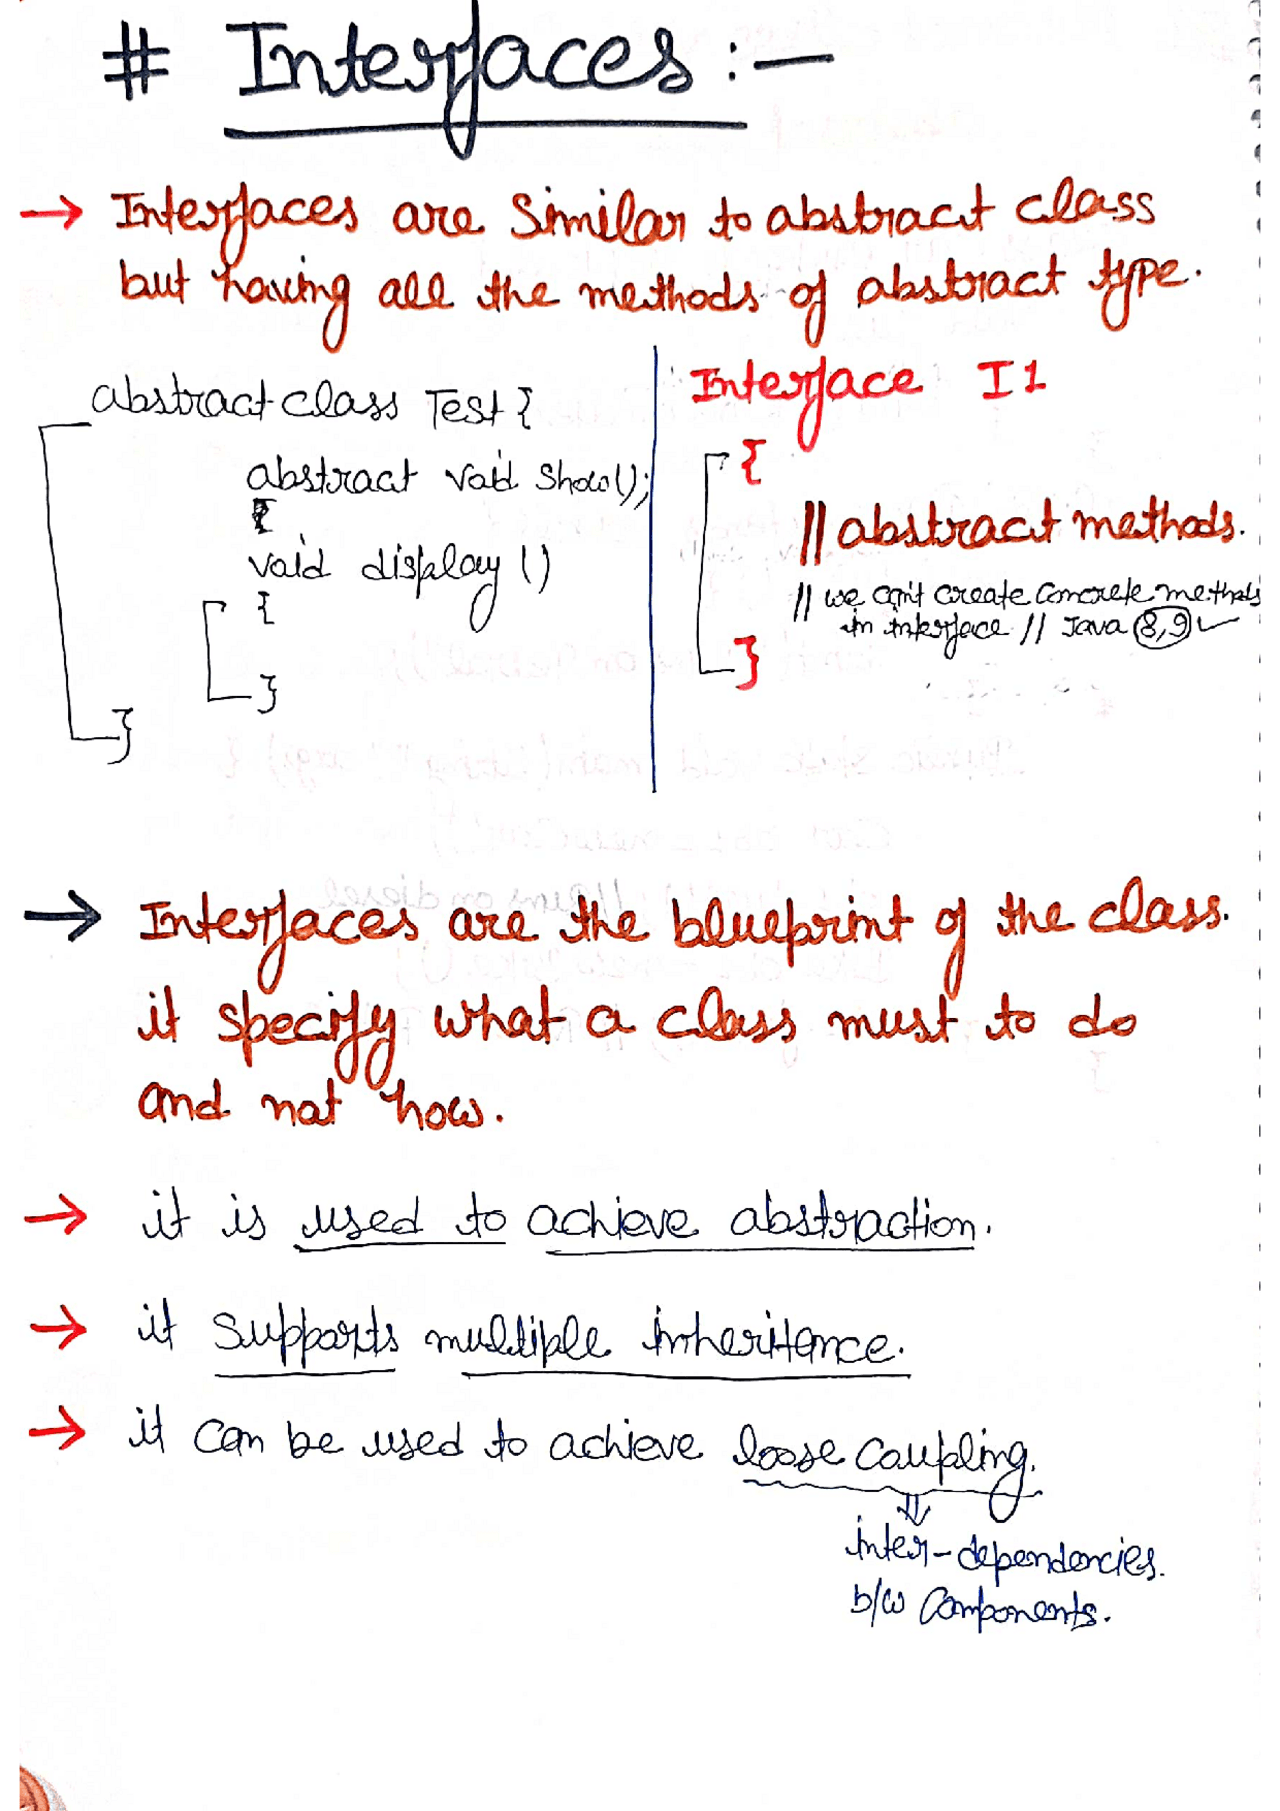 # Interfaces :-
→ Interfaces are Similar to abstract class
but having all the methods of abstract type.
abstract class Test {
abstract void Show();
{
void display ()
{
}
}
Interface I1
{
// abstract methods.
// we can't create Concrete methods
in interface // Java 8,9 ✓
}
→ Interfaces are the blueprint of the class.
it specify what a class must to do
and not how.
→ it is used to achieve abstraction.
→ it Supports multiple inheritance.
→ it can be used to achieve loose Coupling.
⇓
inter-dependencies.
b/w Components.